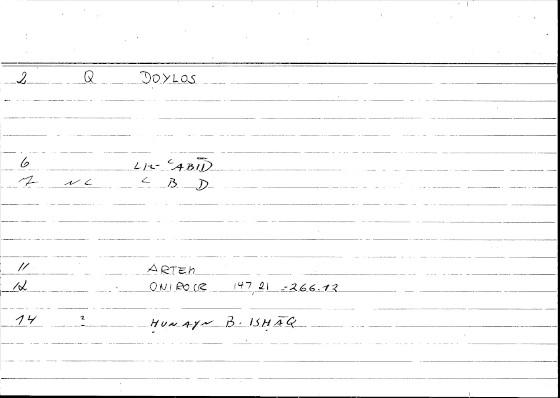 2 Q DOYLOS
6 LI- ʿABĪD
7 NC ʿ B D
11 ARTEM
12 ONIROCR 147,21 =266.12
14 : ḤUNAYN B. ISḤĀQ